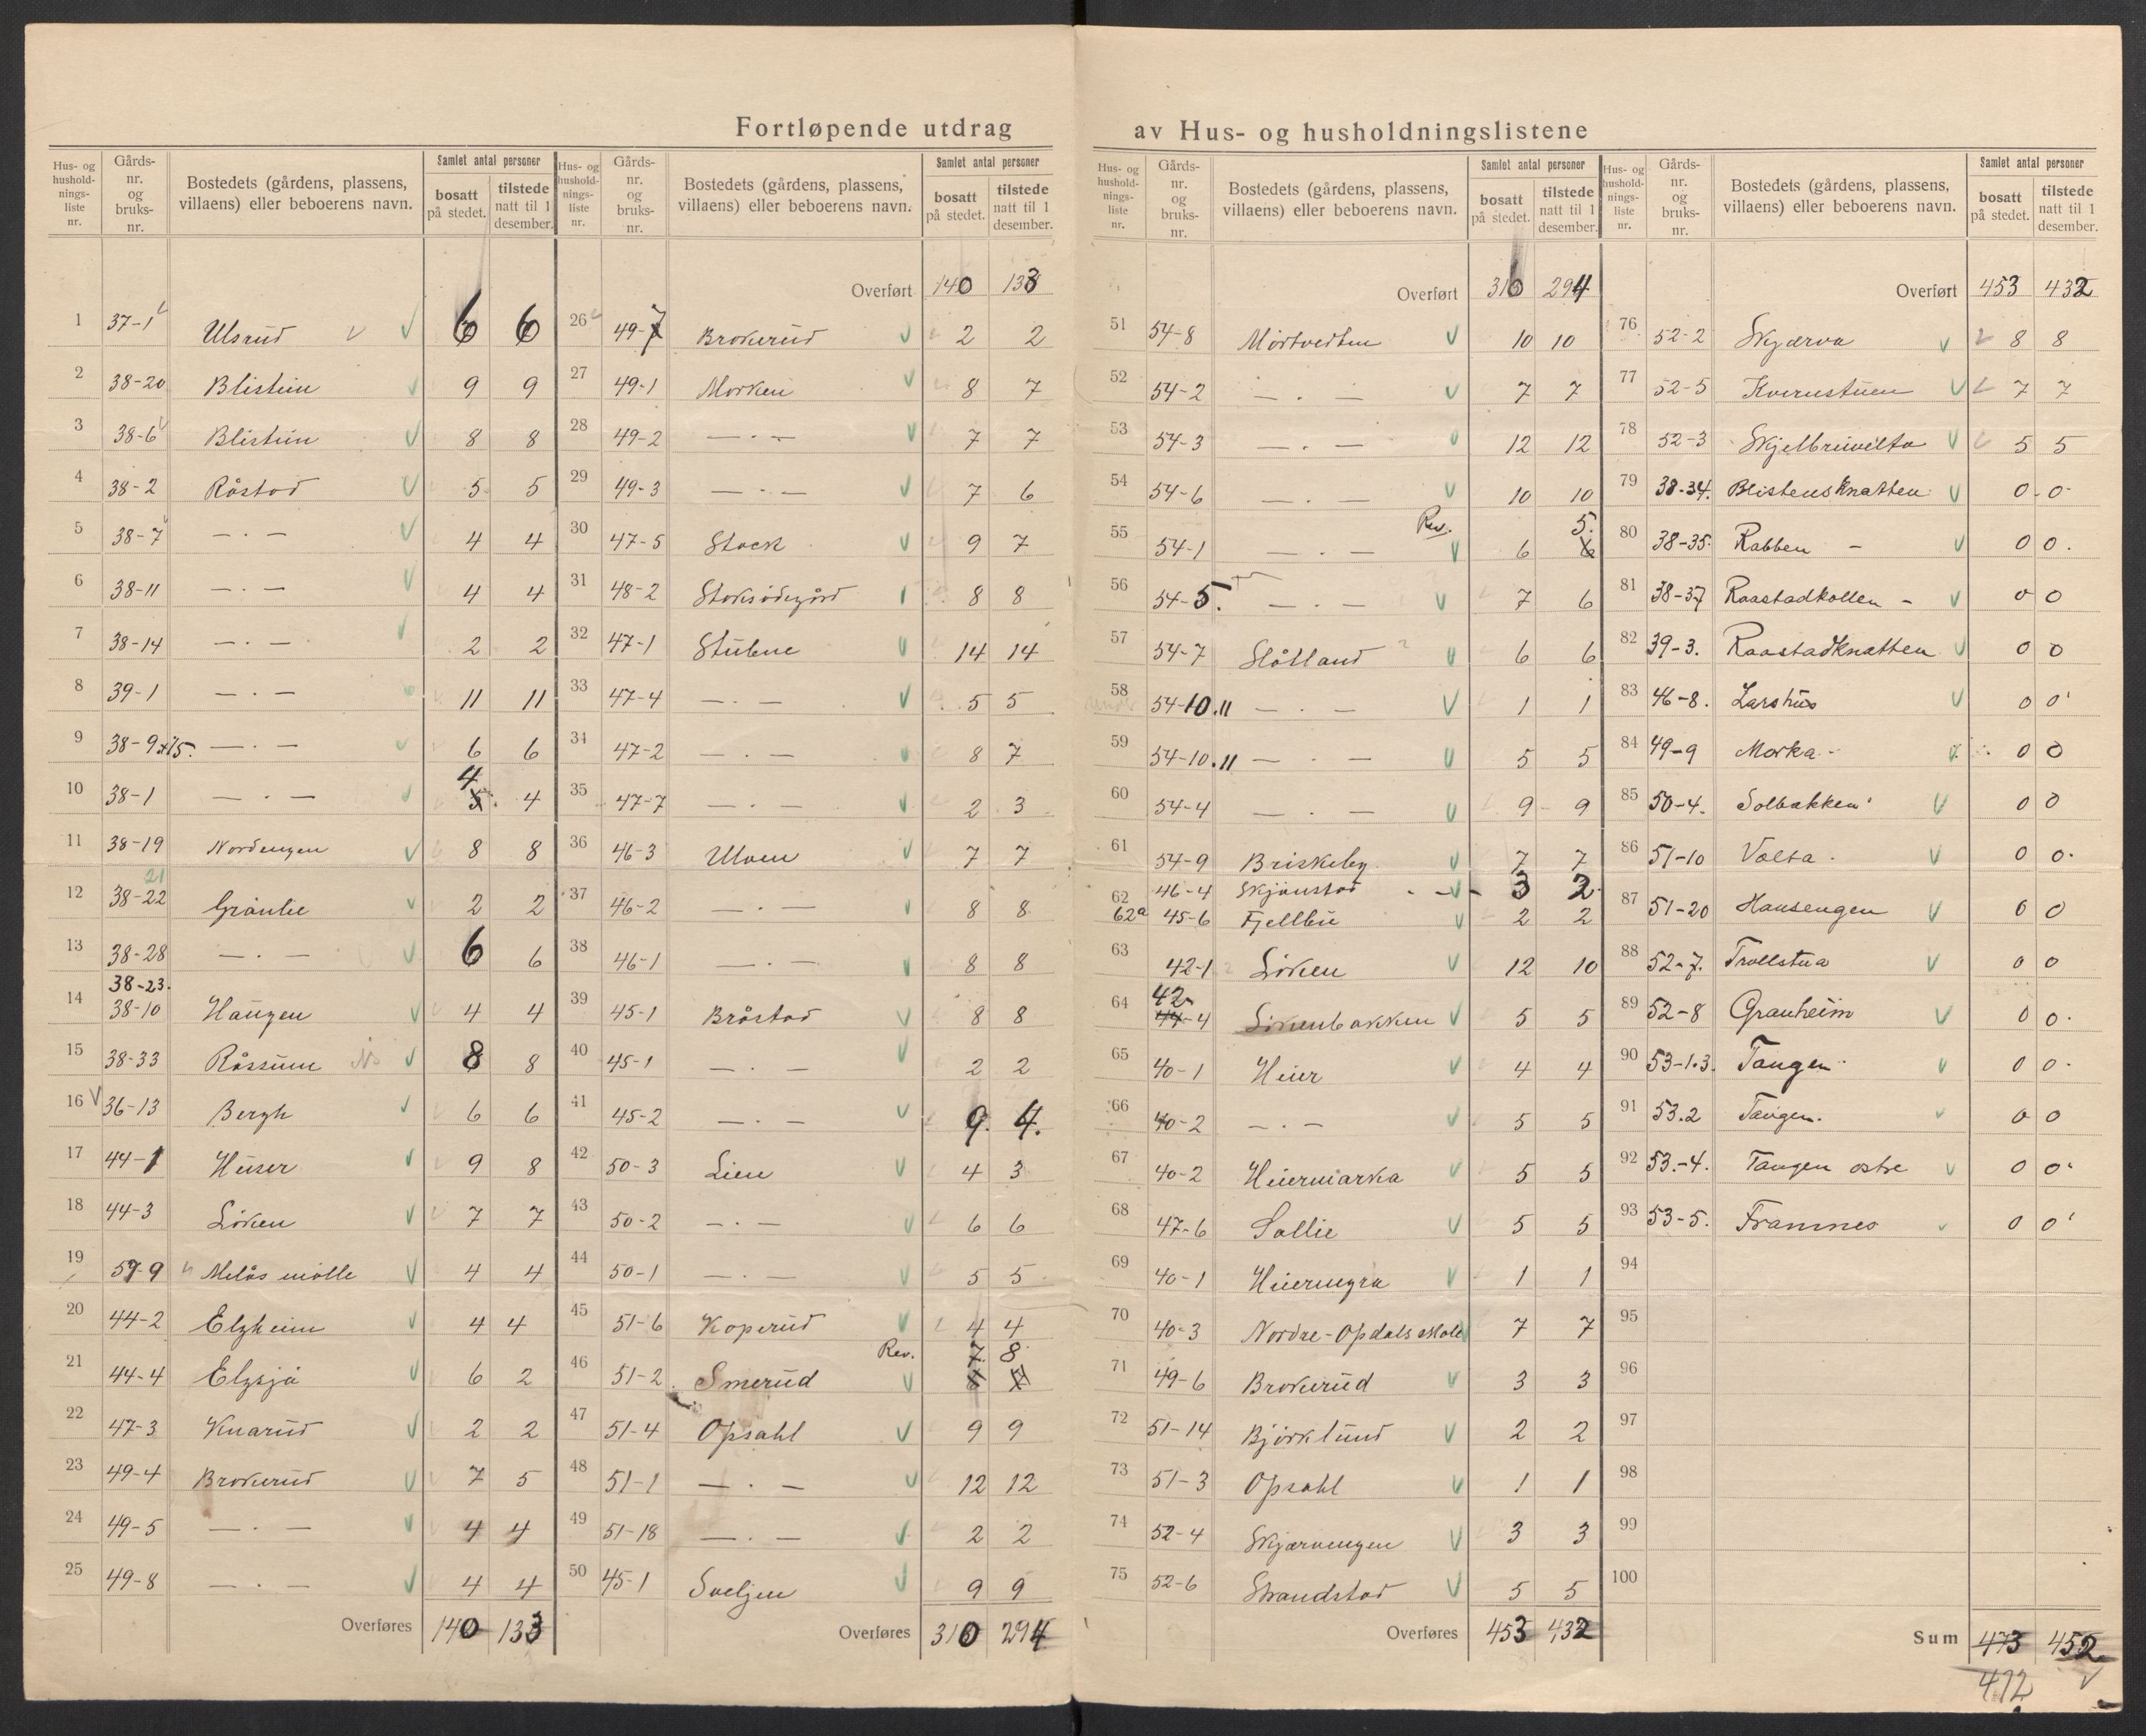 Fortløpende utdrag av Hus- og husholdningslistene
Hus- og husholdnings- liste nr. | Gårds- nr. og bruks- nr. | Bostedets (gårdens, plassens, villaens) eller beboerens navn. | Samlet antal personer bosatt på stedet. | tilstede natt til 1 desember.
1 37-1 Ulsrud 6 6
2 38-20 Blisten 9 9
3 38-6 Blisten 8 8
4 38-2 Råstad 5 5
5 38-7 — . — 4 4
6 38-11 — . — 4 4
7 38-14 — . — 2 2
8 39-1 — . — 11 11
9 38-9+15. — . — 6 6
10 38-1 — . — 4 4
11 38-19 Nordengen 8 8
21
12 38-22 Grånlie 2 2
13 38-28 — . — 6 6
38-23.
14 38-10 Haugen 4 4
15 38-33 Råssum 8 8
16 36-13 Bergh 6 6
17 44-1 Huser 9 8
18 44-3 Löken 7 7
19 57-9 Melås mølle 4 4
20 44-2 Elgheim 4 4
21 44-4 Elgsjå 6 2
22 47-3 Knarud 2 2
23 49-4 Brokerud 7 5
24 49-5 — . — 4 4
25 49-8 — . — 4 4
Overføres 140 133
Hus- og husholdnings- liste nr. | Gårds- nr. og bruks- nr. | Bostedets (gårdens, plassens, villaens) eller beboerens navn. | Samlet antal personer bosatt på stedet. | tilstede natt til 1 desember.
Overført 140 133
26 49-7 Brokerud 2 2
27 49-1 Morken 8 7
28 49-2 — . — 7 7
29 49-3 — . — 7 6
30 47-5 Stock 9 7
31 48-2 Stoksödegård 8 8
32 47-1 Stubene 14 14
33 47-4 — . — 5 5
34 47-2 — . — 8 7
35 47-7 — . — 2 3
36 46-3 Ulven 7 7
37 46-2 — . — 8 8
38 46-1 — . — 8 8
39 45-1 Bråstad 8 8
40 45-1 — . — 2 2
41 45-2 — . — 9. 4.
42 50-3 Lien 4 3
43 50-2 — . — 6 6
44 50-1 — . — 5 5
45 51-6 Koperud 4 4
Rev. 7. 8
46 51-2 Smerud
47 51-4 Opsahl 9 9
48 51-1 — . — 12 12
49 51-18 — . — 2 2
50 45-1 Sveljen 9 9
Overføres 310 294
Hus- og husholdnings- liste nr. | Gårds- nr. og bruks- nr. | Bostedets (gårdens, plassens, villaens) eller beboerens navn. | Samlet antal personer bosatt på stedet. | tilstede natt til 1 desember.
Overført 310 294
51 54-8 Mörtvedten 10 10
52 54-2 — . — 7 7
53 54-3 — . — 12 12
54 54-6 — . — 10 10
Rev. 5.
55 54-1 — . — 6 6
56 54-5. — . — 7 6
57 54-7 Slåtland 6 6
58 54-10.11 — . — 1 1
59 54-10.11 — . — 5 5
60 54-4 — . — 9 9
61 54-9 Briskeby 7 7
62 46-4 Skjönstad 3 2
62a 45-6 Fjellbu 2 2
63 42-1 Löken 12 10
42-
64 44-4 Lökenbakken 5 5
65 40-1 Heier 4 4
66 40-2 — . — 5 5
67 40-2 Heiermarka 5 5
68 47-6 Sollie 5 5
69 40-1 Heiermyra 1 1
70 40-3 Nordre-Opdals skole 7 7
71 49-6 Brokerud 3 3
72 51-14 Björklund 2 2
73 51-3 Opsahl 1 1
74 52-4 Skjærvengen 3 3
75 52-6 Strandstad 5 5
Overføres 453 432
Hus- og husholdnings- liste nr. | Gårds- nr. og bruks- nr. | Bostedets (gårdens, plassens, villaens) eller beboerens navn. | Samlet antal personer bosatt på stedet. | tilstede natt til 1 desember.
Overført 453 432
76 52-2 Skjærva 8 8
77 52-5 Kvernstuen 7 7
78 52-3 Skjelbreivelta 5 5
79 38-34. Blistensknatten 0 - 0
80 38-35. Rabben - 0 0.
81 38-37 Raastadkollen - 0 0
82 39-3. Raastadknatten 0 0
83 46-8. Larshus 0 0
84 49-9 Morka 0 0
85 50-4. Solbakken 0 0
86 51-10 Volta 0 0.
87 51-20 Hansengen 0 0
88 52-7. Trollstua 0 0
89 52-8 Granheim 0 0.
90 53-1.3. Tangen 0 0.
91 53.2 Tangen. 0 0
92 53.-4. Tangen østre 0 0
93 53-5. Framnes 0 0
94
95
96
97
98
99
100
Sum 473 452
472